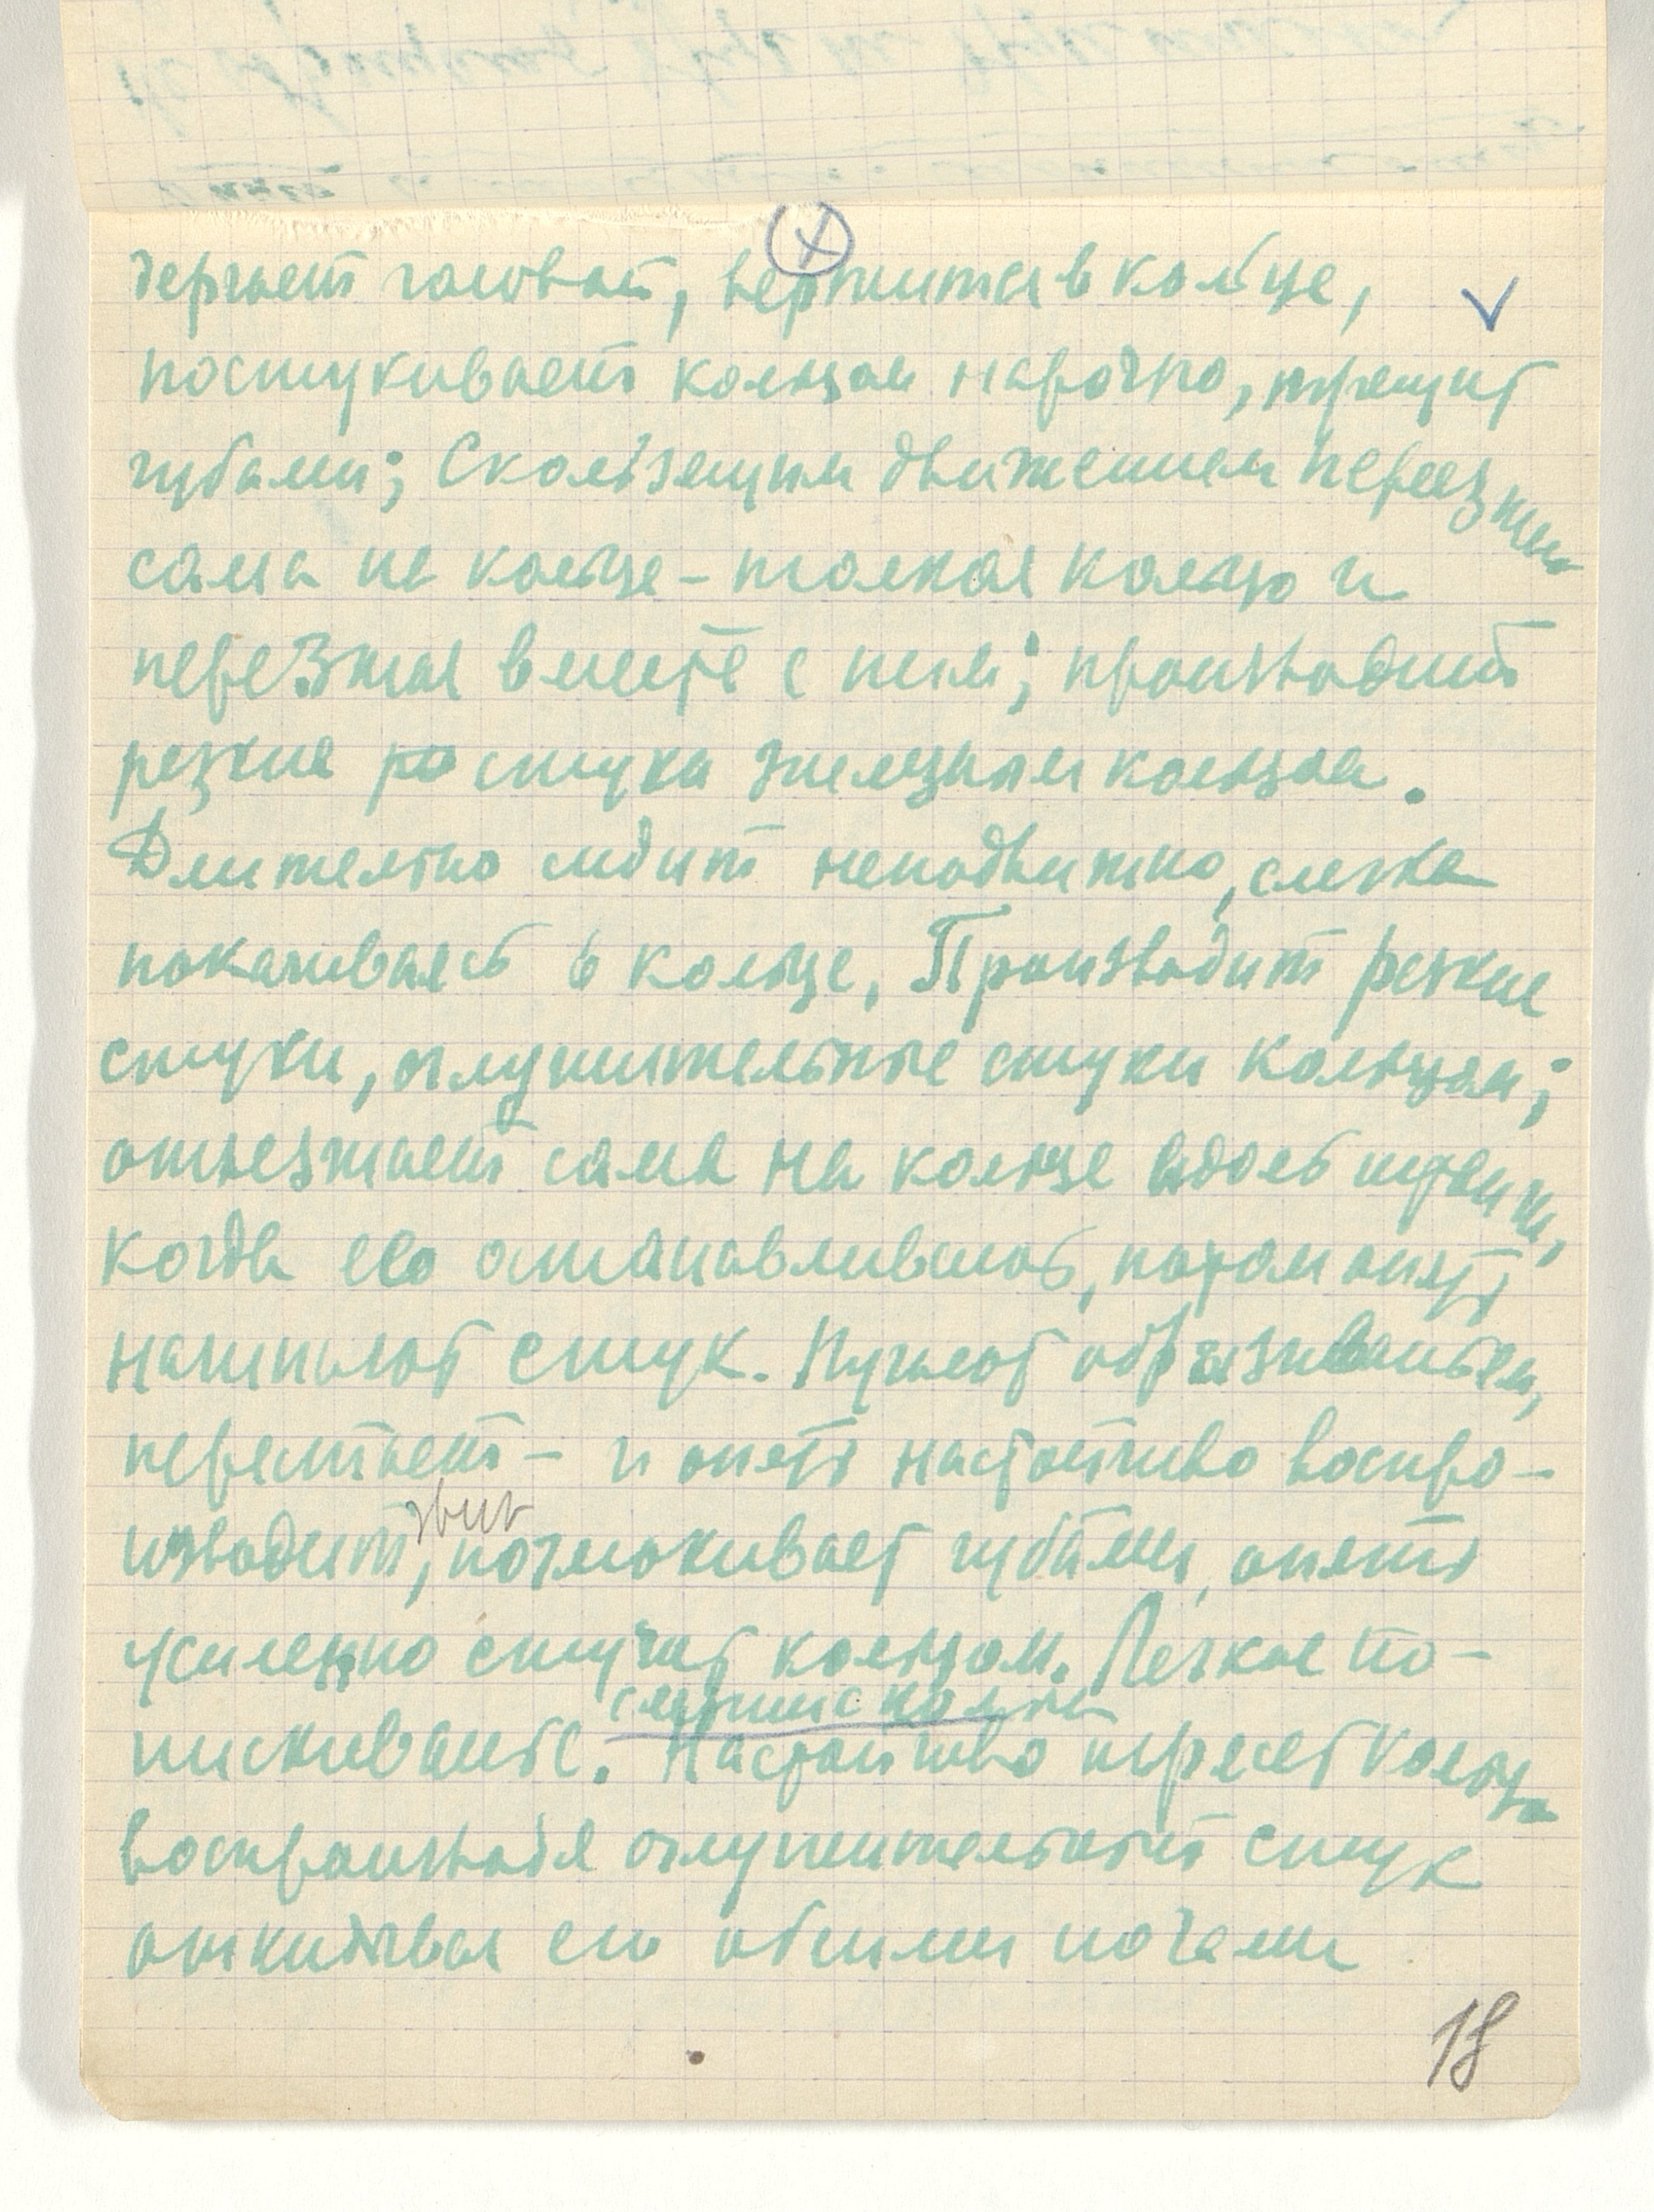 дергает головой, вертится в кольце,
постукивает кольцом нарочно, трещит
губами; Скользящим движением переезжает
сама на кольце – толкая кольцо и
переезжая вместе с ним; производит
резкие стуки кольцом.
Длительно сидит неподвижно, слегка
покачиваясь в кольце. Производит резкие
стуки, оглушительные стуки кольцом;
отъезжает сама на кольце вдоль
когда его останавливают, потом опять
начинает стук. Пугают
перестает – и опять настойчиво воспро-
звук
изводит, почмокивает губами, опять
усиленно стучит кольцом. Легкое по-
пискиванье. Настойчиво кольцо
воспроизводя оглушительный стук
откидывая его обеими ногами
18